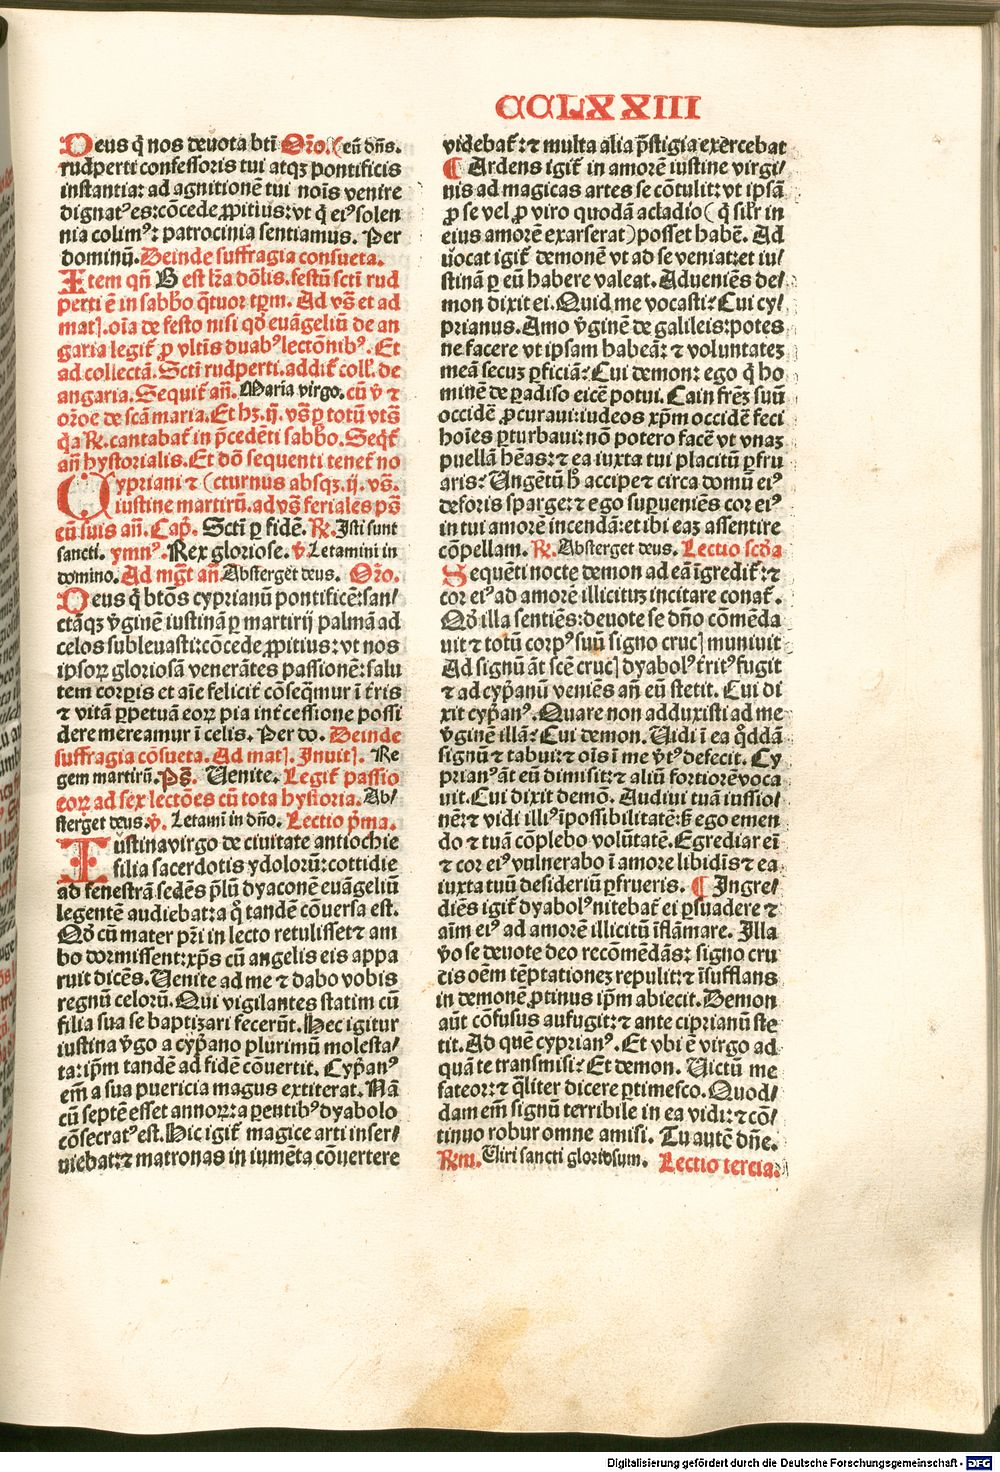 CCLXXIII
Deus q̄ nos deuota bti̅ Or̅o. (eu̅ dn̅s.
rudperti confessoris tui atqꝫ pontificis
instantia: ad agnitione̅ tui nois̅ venire
dignatꝰes: co̅cede ꝓpitius: vt q̄ eiꝰ solen
nia colimꝰ: patrocinia sentiamus. Per
dominu̅. Deinde suffragia consueta.
Item qn̅ B est lr̅a do̅lis. festu̅ scti̅ rud
perti e̅ in sabb̅o q̅tuor tp̅m. Ad vs̅ et ad
mat]. oi̅a de festo nisi qd̅ eua̅geliu̅ de an
garia legit̅ ꝓ vltis̅ duabꝰ lecto̅nibꝰ. Et
ad collecta̅. Scti̅ rudperti. addit̅ coll̅. de
angaria. Sequit̅ an̅. Maria virgo. cu̅ v̅ ⁊
oro̅e de sca̅ maria. Et hꝫ. ij. vs̅ ꝑ totu̅ vts̅
q̅a ℞. cantabat̅ in p̅cede̅ti sabb̅o. Seqt̅
an̅ hystorialis. Et do̅ sequenti tenet̅ no
Cypriani ⁊ (cturnus absqꝫ. ij. vs̅.
iustine martiru̅. ad vs̅ feriales ps̅
cu̅ suis an̅. Cap̅. Scti̅ ꝑ fide̅. ℞. Isti sunt
sancti. ymnꝰ. Rex gloriose. v̅. Letamini in
domino. Ad mgt̅ an̅ Absterget deus. Or̅o.
Deus q̅ bto̅s cyprianu̅ pontifice̅: san/
cta̅qꝫ v̅gine̅ iustina̅ ꝑ martirij palma̅ ad
celos subleuasti: co̅cede ꝓpitius: vt nos
ipsoꝝ gloriosa̅ venera̅tes passione̅: salu
tem corp̅is et ai̅e felicit̅ co̅seq̅mur i̅ t̅ris
⁊ vita̅ ꝑpetua̅ eoꝝ pia int̅cessione possi
dere mereamur i̅ celis. Per do. Deinde
suffragia co̅sueta. Ad mat]. Inuit]. Re
gem martiru̅. Ps̅. Uenite. Legit̅ passio
eoꝝ ad sex lecto̅es cu̅ tota hystoria. Ab/
sterget deus. v̅. Letami̅ in dn̅o. Lectio p̅ma.
Iustina virgo de ciuitate antiochie
filia sacerdotis ydoloru̅: cottidie
ad fenestra̅ sede̅s p̅lu̅ dyacone̅ eua̅geliu̅
legente̅ audiebat: a q̊ tande̅ co̅uersa est.
Qd̅ cu̅ mater pr̅i in lecto retulisset ⁊ am
bo dormissent: xp̅s cu̅ angelis eis appa
ruit dice̅s. Uenite ad me ⁊ dabo vobis
regnu̅ celoru̅. Qui vigilantes statim cu̅
filia sua se baptizari feceru̅t. Hec igitur
iustina v̅go a cyp̅ano plurimu̅ molesta/
ta: ip̅m tande̅ ad fide̅ co̅uertit. Cyp̅anꝰ
em̅ a sua puericia magus extiterat. Na̅
cu̅ septe̅ esset annoꝝ: a pentibꝰ dyabolo
co̅secratꝰ est. Hic igit̅ magice arti inser/
uiebat: ⁊ matronas in iume̅ta co̅uertere
videbat̅: ⁊ multa alia p̅stigia exercebat
¶ Ardens igit̅ in amore̅ iustine virgi/
nis ad magicas artes se co̅tulit: vt ipsa̅
ꝓ se vel ꝓ viro quoda̅ acladio (q̅ silr̅ in
eius amore̅ exarserat) posset habe̅. Ad
uocat igit̅ demone̅ vt ad se veniat: et iu/
stina̅ ꝑ eu̅ habere valeat. Adueniēs de/
mon dixit ei. Quid me vocasti? Cui cy/
prianus. Amo v̅gine̅ de galileis: potes
ne facere vt ipsam habea̅: ⁊ voluntateꝫ
mea̅ secuꝫ ꝑficia̅? Cui demon: ego q̅ ho
mine̅ de ꝑadiso eice̅ potui. Cain fre̅ꝫ suu̅
occide̅ ꝓcuraui: iudeos xp̅m occide̅ feci
hoi̅es ꝑturbaui: no̅ potero face̅ vt vnaꝫ
puella̅ he̅as: ⁊ ea iuxta tui placitu̅ ꝑfru
aris? Unge̅tu̅ h̊ accipe ⁊ circa domu̅ eiꝰ
deforis sparge: ⁊ ego suꝑuenie̅s cor eiꝰ
in tui amore̅ incenda̅: et ibi eaꝫ assentire
co̅pellam. ℞. Absterget deus. Lectio sc̅da
Seque̅ti nocte demon ad ea̅ i̅gredit̅: ⁊
cor eiꝰ ad amore̅ illicituꝫ incitare conat̅.
Qd̅ illa sentie̅s: deuote se dn̅o co̅me̅da
uit ⁊ totu̅ corpꝰ suu̅ signo cruc] muniuit
Ad signu̅ a̅t sce̅ cruc] dyabolꝰ t̅ritꝰ fugit
⁊ ad cyp̅anu̅ venie̅s an̅ eu̅ stetit. Cui di
xit cyp̅anꝰ. Quare non adduxisti ad me
v̅gine̅ illa̅? Cui demon. Uidi i̅ ea q̊dda̅
signu̅ ⁊ tabui: ⁊ ois̅ i̅ me v̅tꝰ defecit. Cy
prianꝰ a̅t eu̅ dimisit: ⁊ aliu̅ fortiore̅ voca
uit. Cui dixit demo̅. Audiui tua̅ iussio/
ne̅: ⁊ vidi illiꝰ i̅possibilitate̅: sꝫ ego emen
do ⁊ tua̅ co̅plebo volu̅tate̅. Egrediar ei̅
⁊ cor eiꝰ vulnerabo i̅ amore libidis̅ ⁊ ea
iuxta tuu̅ desideriu̅ ꝑfrueris. ¶ Ingre/
die̅s igit̅ dyabolꝰ nitebat̅ ei ꝑsuadere ⁊
ai̅m eiꝰ ad amore̅ illicitu̅ i̅fla̅mare. Illa
v̊o se deuote deo reco̅me̅da̅s: signo cru
cis oe̅m te̅ptationeꝫ repulit: ⁊ i̅sufflans
in demone̅ ꝓtinus ip̅m abiecit. Demon
au̅t co̅fusus aufugit: ⁊ ante ciprianu̅ ste
tit. Ad que̅ cyprianꝰ. Et vbi e̅ virgo ad
qua̅ te transmisi? Et demon. Uictu̅ me
fateor: ⁊ q̅liter dicere ꝑtimesco. Quod/
dam em̅ signu̅ terribile in ea vidi: ⁊ co̅/
tinuo robur omne amisi. Tu aute̅ dn̅e.
℞m. Uiri sancti gloriosum. Lectio tercia.
Digitalisierung gefördert durch die Deutsche Forschungsgemeinschaft - DFG